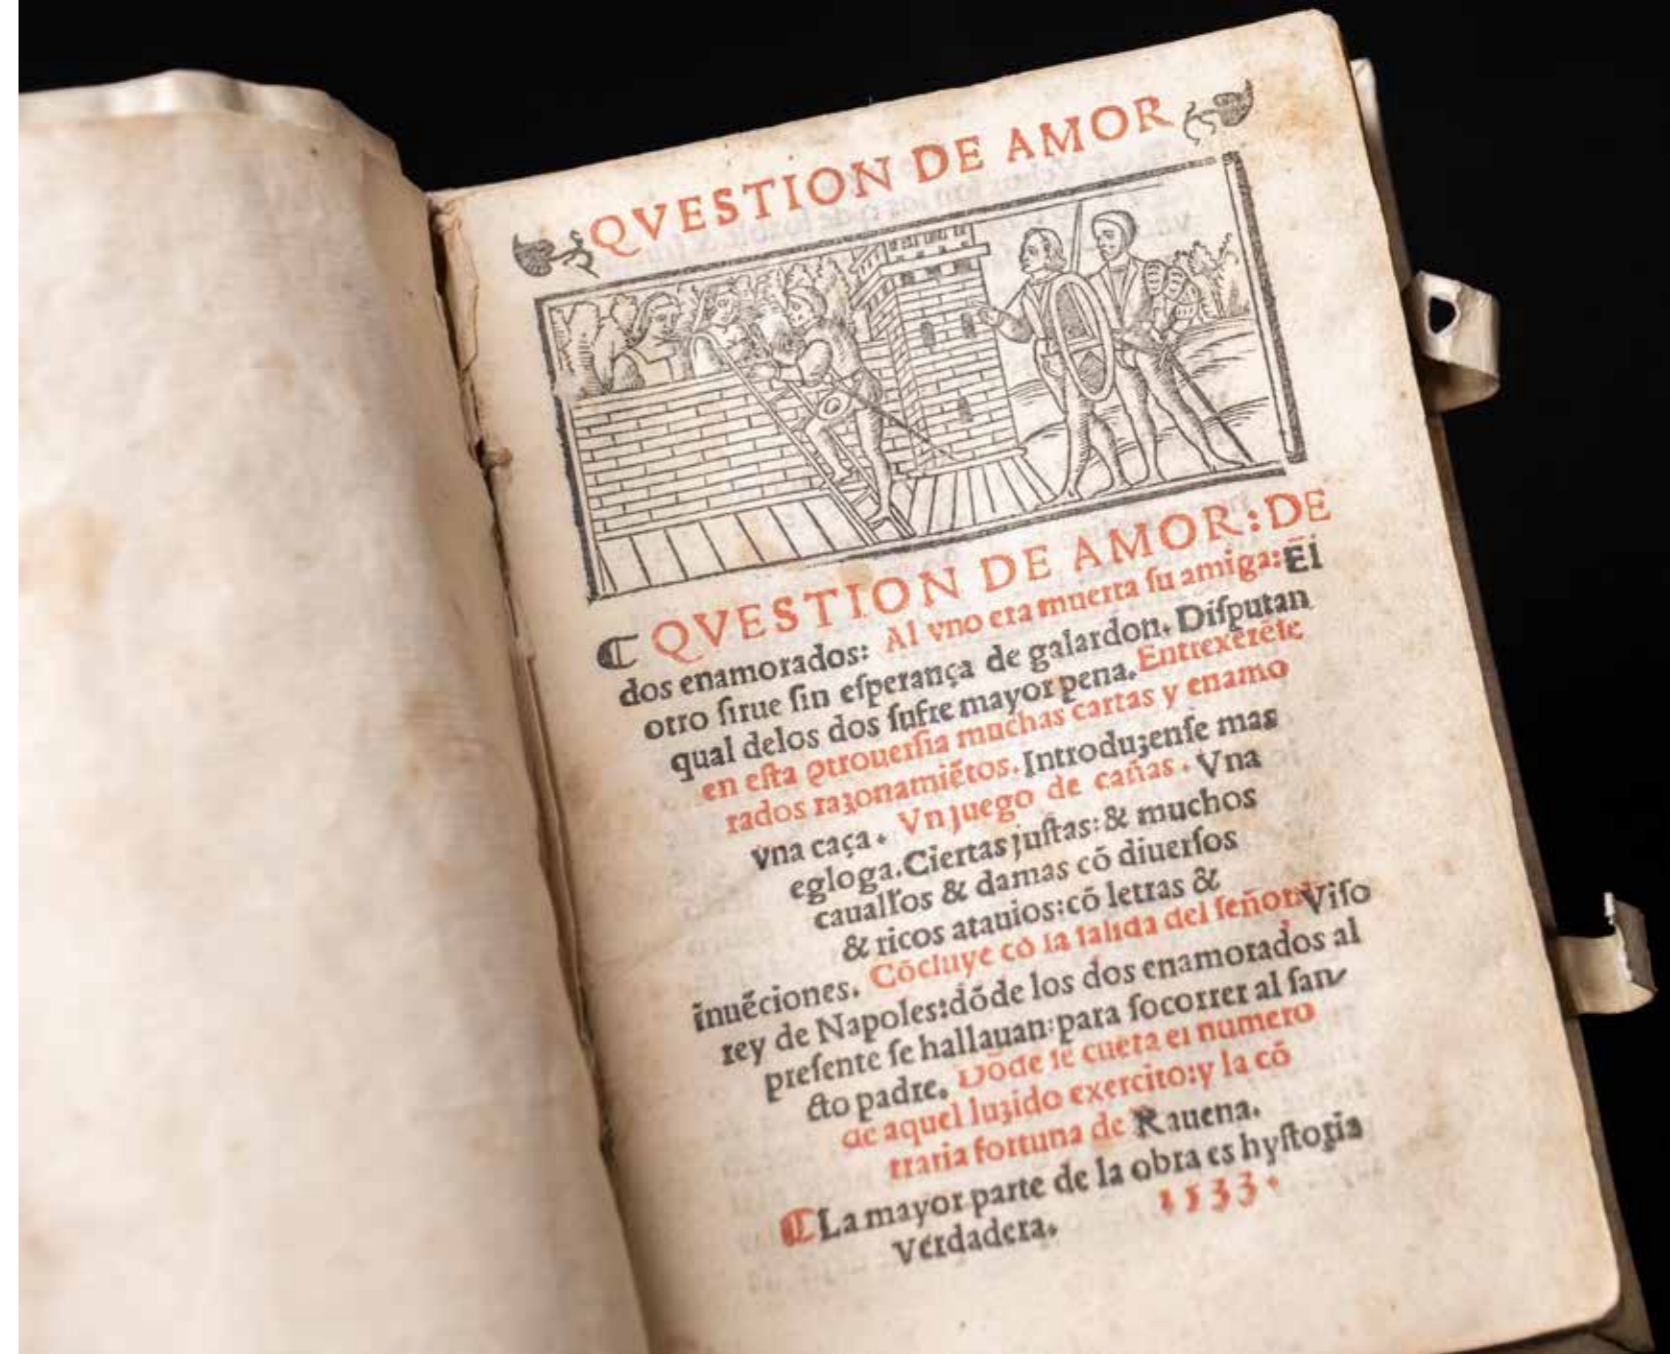 QVESTION DE AMOR
☙ QVESTION DE AMOR: DE
dos enamorados: Al vno era muerta ſu amiga: El
otro ſirue ſin eſperança de galardon. Diſputan
qual delos dos ſufre mayor pena. Entrexerẽſe
en eſta ꝯtrouerſia muchas cartas y enamo
rados razonamiẽtos. Introduzenſe mas
vna caça. Vn juego de cañas. Vna
egloga. Ciertas juſtas: & muchos
cauallꝛos & damas cõ diuerſos
& ricos atauios: cõ letras &
inuẽciones. Cõcluye cõ la ſalida del ſeñor Viſo
rey de Napoles: dõde los dos enamorados al
preſente ſe hallauan: para ſocorrer al ſan
cto padre. Dõde ſe cuẽta el numero
de aquel luzido exercito: y la cõ
traria fortuna de Rauena.
☙ La mayor parte de la obra es hyſtoria
Verdadera. 1533.